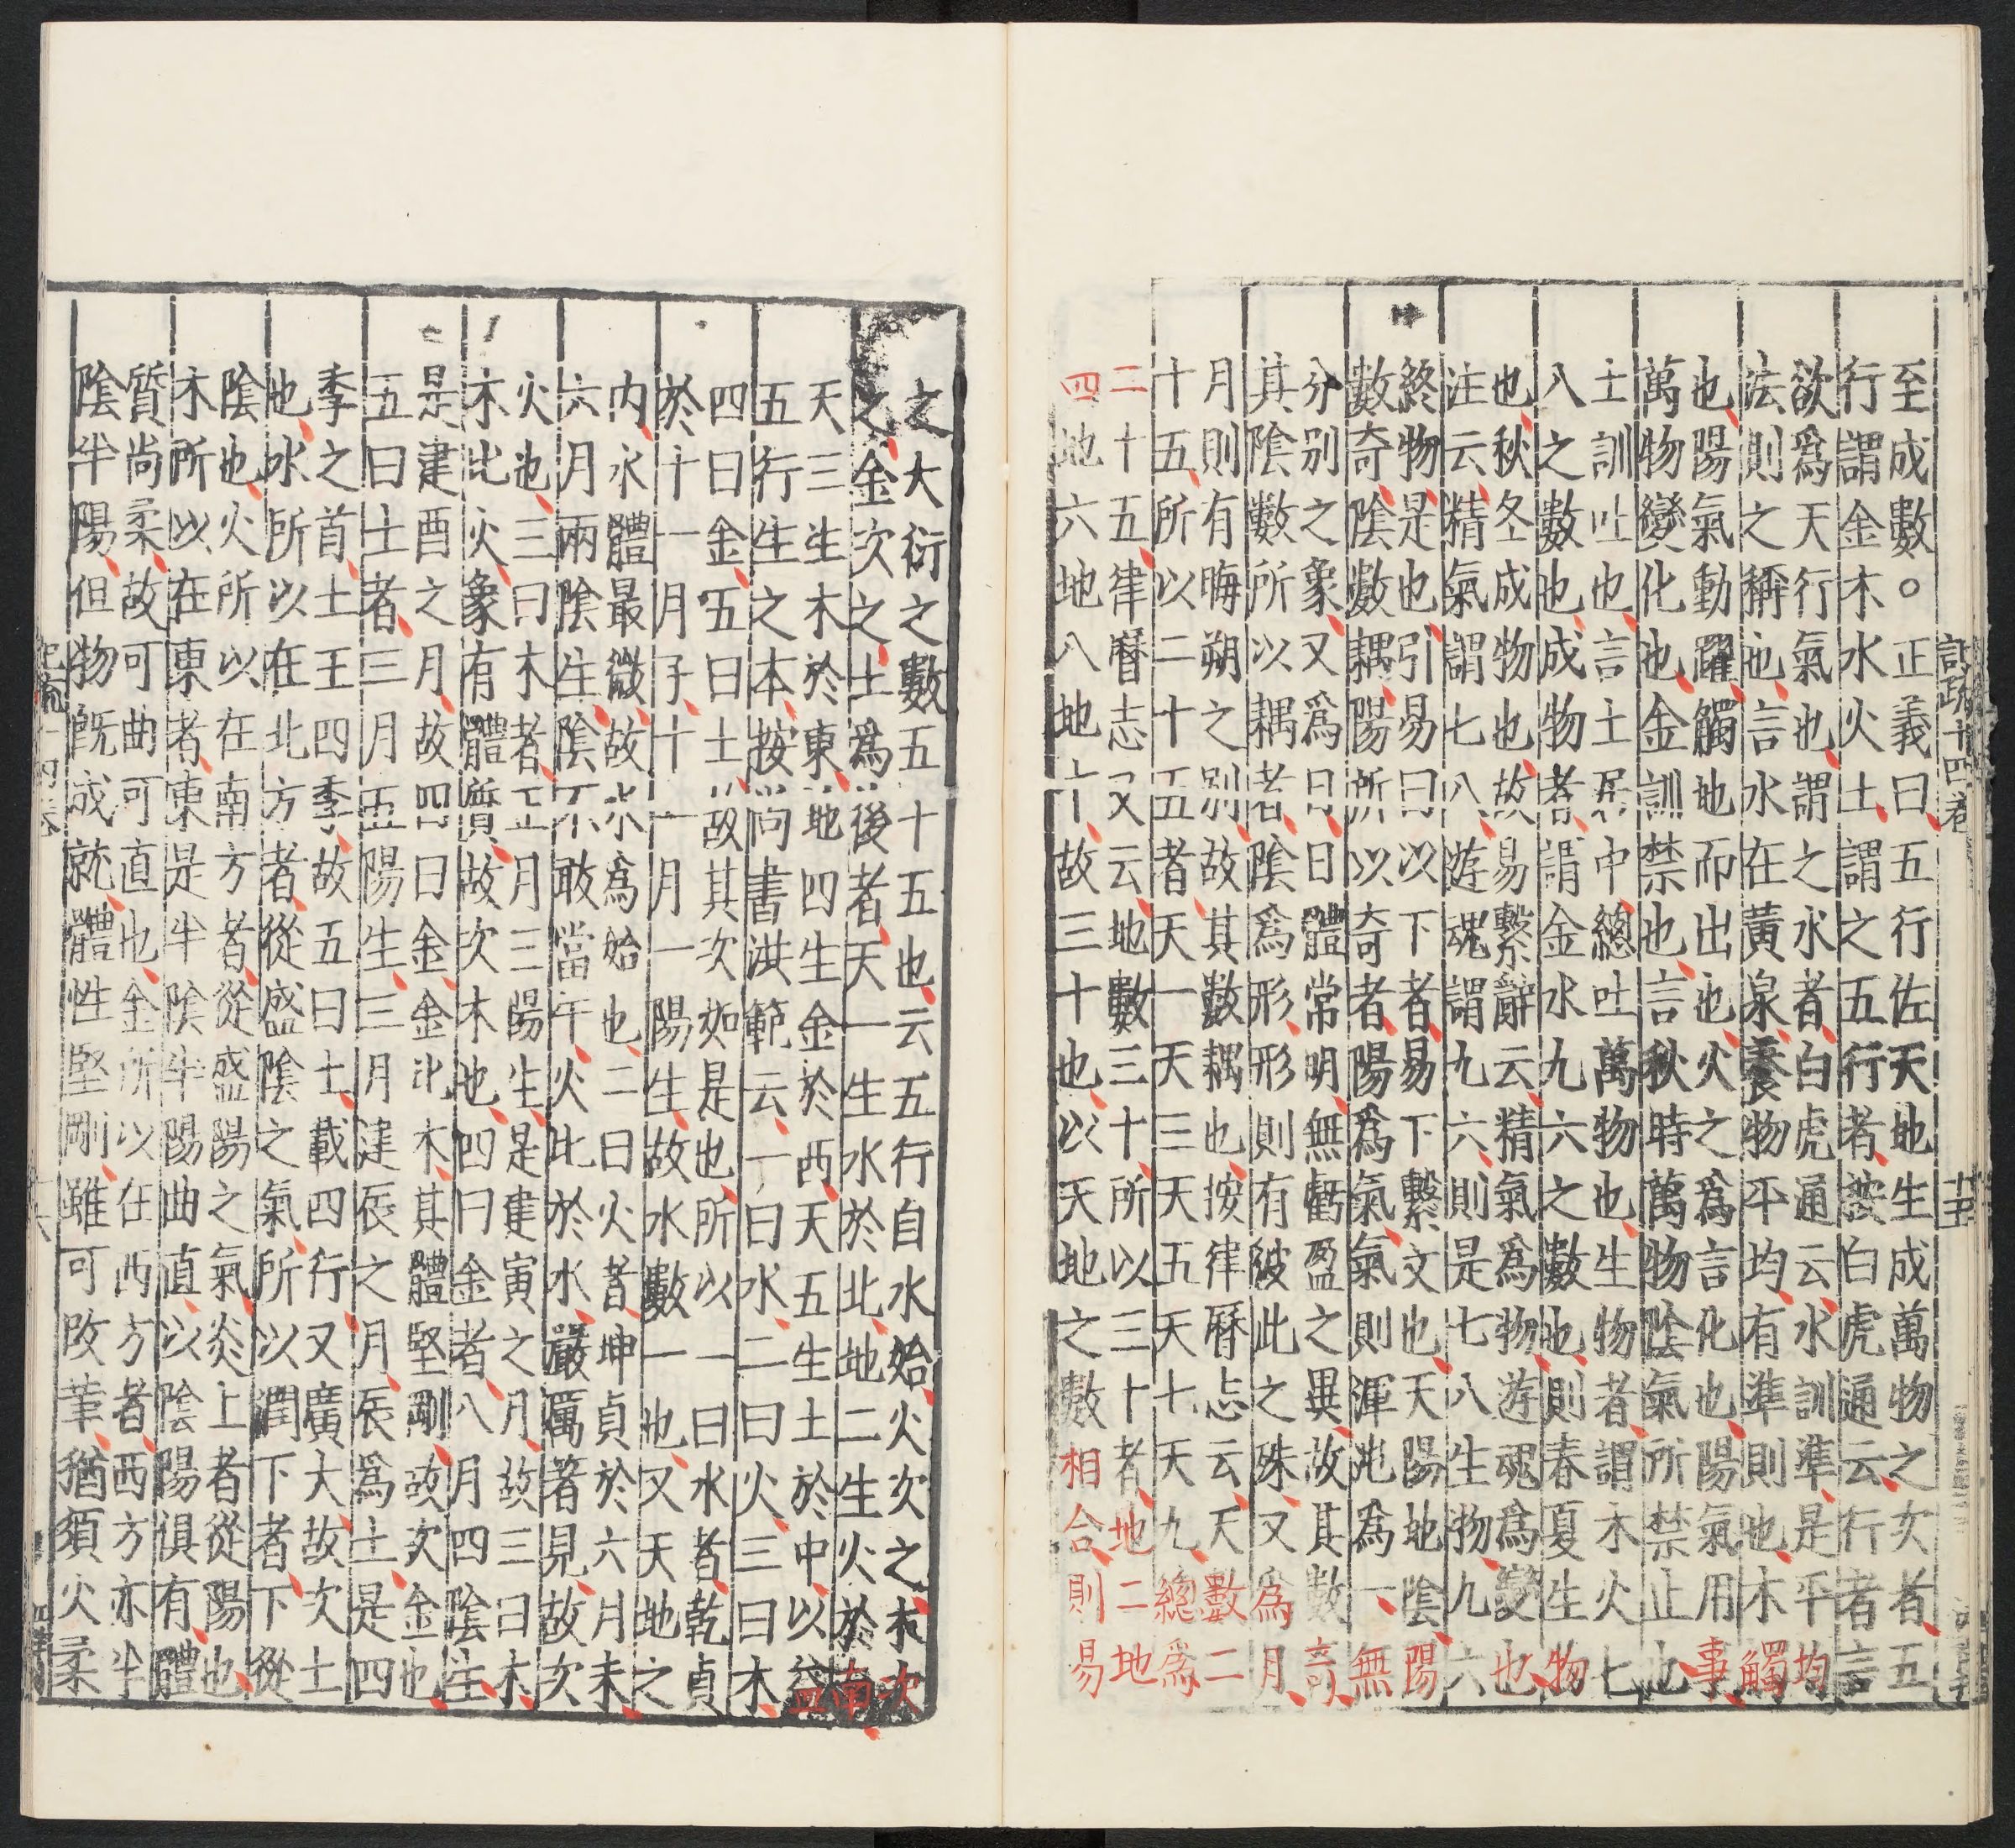 記疏十四卷
廿五
至成數。正義曰五行佐天地生成萬物之次者五
行謂金木水火土謂之五行者按白虎通云行者言
欲爲天行氣也謂之水者白虎通云水訓準是平均
法則之稱也言水在黃泉養物平均有準則也木觸
也陽氣動躍觸地而出也火之爲言化也陽氣用事
萬物變化也金訓禁也言秋時萬物陰氣所禁止也
土訓吐也言土居中總吐萬物也生物者謂木火七
八之數也成物者謂金水九六之數也則春夏生物
也秋冬成物也故易繫辭云精氣爲物遊魂爲變也
注云精氣謂七八遊魂謂九六則是七八生物九六
終物是也引易曰以下者易下繫文也天陽地陰陽
數奇陰數耦陽所以奇者陽爲氣氣則渾沌爲一無
分別之象又爲日日體常明無虧盈之異故其數奇
其陰數所以耦者陰爲形形則有彼此之殊又爲月
月則有晦朔之別故其數耦也按律曆志云天數二
十五所以二十五者天一天三天五天七天九總爲
二十五律曆志又云地數三十所以三十者地二地
四地六地八地十故三十也以天地之數相合則易
之大衍之數五十五也云五行自水始火次之木次
之金次之土爲後者天一生水於北地二生火於南
天三生木於東地四生金於西天五生土於中以益
五行生之本按尚書洪範云一曰水二曰火三曰木
四曰金五曰土故其次如是也所以一曰水者乾貞
於十一月子十一月一陽生故水數一也又天地之
内水體最微故水爲始也二曰火者坤貞於六月未
六月兩陰生陰不敢當午火比於水嚴厲著見故次
火也三曰木者正月三陽生是建寅之月故三曰木
木比火象有體質故次木也四曰金者八月四陰生
是建酉之月故四曰金金比木其體堅剛故次金也
五曰土者三月五陽生三月建辰之月辰爲土是四
季之首土王四季故五曰土載四行又廣大故次土
也水所以在北方者從盛陰之氣所以潤下者下從
陰也火所以在南方者從盛陽之氣炎上者從陽也
木所以在東者東是半陰半陽曲直以陰陽俱有體
質尚柔故可曲可直也金所以在西方者西方亦半
陰半陽但物旣成就體性堅剛雖可改革猶須火柔